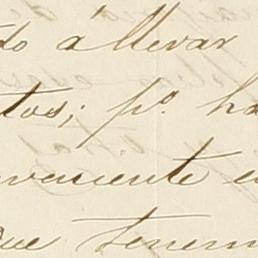 do a llevar
tos; pº. ha
veniente e
que tenem